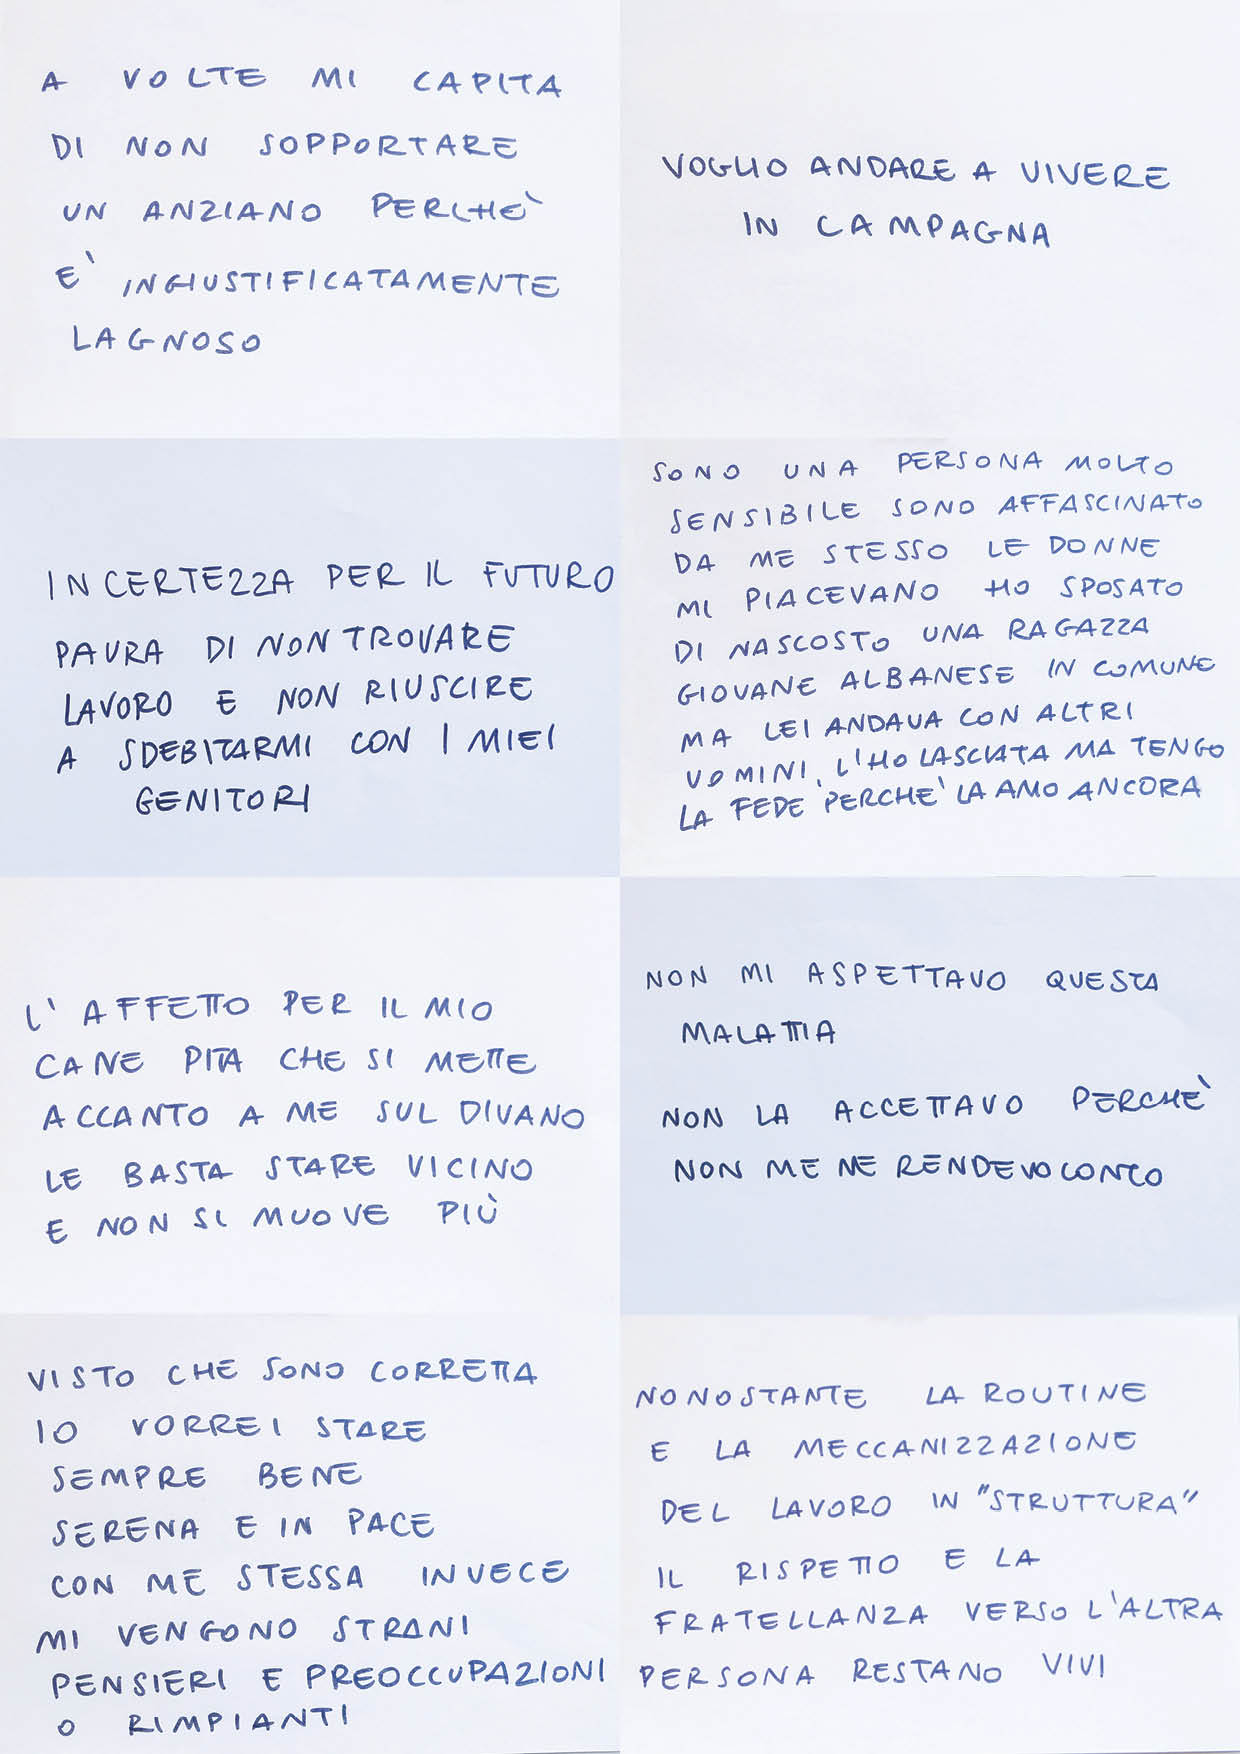 A VOLTE MI CAPITA
DI NON SOPPORTARE
UN ANZIANO PERCHÈ
E' INGIUSTIFICATAMENTE
LAGNOSO
VOGLIO ANDARE A VIVERE
IN CAMPAGNA
INCERTEZZA PER IL FUTURO
PAURA DI NON TROVARE
LAVORO E NON RIUSCIRE
A SDEBITARMI CON I MIEI
GENITORI
SONO UNA PERSONA MOLTO
SENSIBILE SONO AFFASCINATO
DA ME STESSO LE DONNE
MI PIACEVANO HO SPOSATO
DI NASCOSTO UNA RAGAZZA
GIOVANE ALBANESE IN COMUNE
MA LEI ANDAVA CON ALTRI
UOMINI, L'HO LASCIATA MA TENGO
LA FEDE PERCHE' LA AMO ANCORA
L'AFFETTO PER IL MIO
CANE PITA CHE SI METTE
ACCANTO A ME SUL DIVANO
LE BASTA STARE VICINO
E NON SI MUOVE PIÙ
NON MI ASPETTAVO QUESTA
MALATTIA
NON LA ACCETTAVO PERCHÈ
NON ME NE RENDEVO CONTO
VISTO CHE SONO CORRETTA
IO VORREI STARE
SEMPRE BENE
SERENA E IN PACE
CON ME STESSA INVECE
MI VENGONO STRANI
PENSIERI E PREOCCUPAZIONI
O RIMPIANTI
NONOSTANTE LA ROUTINE
E LA MECCANIZZAZIONE
DEL LAVORO IN "STRUTTURA"
IL RISPETTO E LA
FRATELLANZA VERSO L'ALTRA
PERSONA RESTANO VIVI